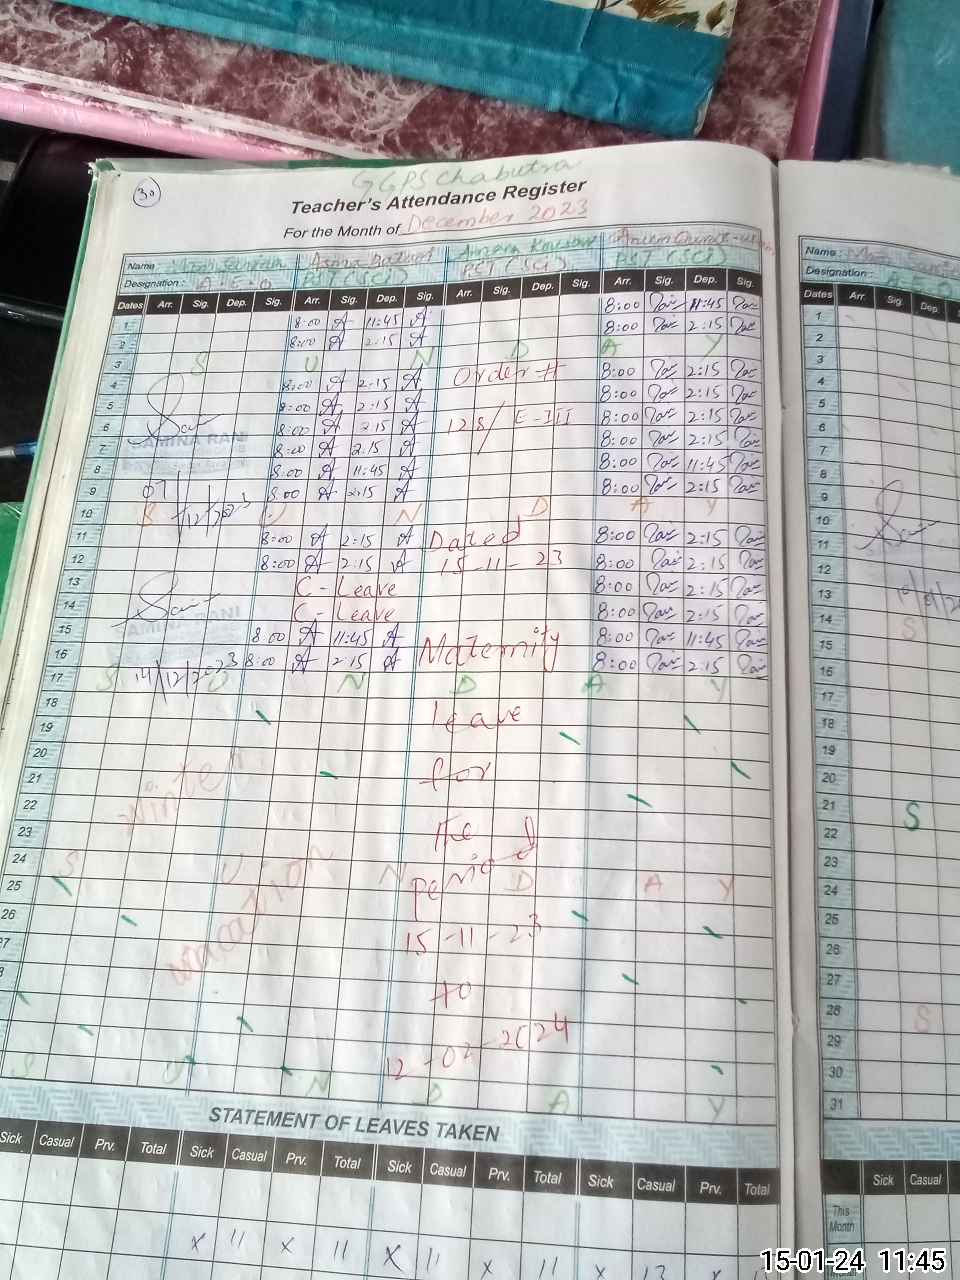 30
GGPS Chabutra
Teacher's Attendance Register
For the Month of December 2023
Name
Designation : A-E-O PST (SCi) PST (SCi) PST (SCi)
Dates Arr. Sig. Dep. Sig. Arr. Sig. Dep. Sig. Arr. Sig. Dep. Sig. Arr. Sig. Dep. Sig.
1 8:00 A 11:45 A 8:00 11:45
2 8:00 A 2:15 A 8:00 2:15
3 S U N D A Y
4 8:00 A 2:15 A Order # 8:00 2:15
5 8:00 A 2:15 A 8:00 2:15
6 8:00 A 2:15 A 128/E-III 8:00 2:15
7 SAMINA RANI 8:00 A 2:15 A 8:00 2:15
8 8:00 A 11:45 A 8:00 11:45
9 07/12/2023 8:00 A 2:15 A 8:00 2:15
10 S U N D A Y
11 8:00 A 2:15 A Dated 8:00 2:15
12 8:00 A 2:15 A 15-11-23 8:00 2:15
13 C-Leave 8:00 2:15
14 SAMINA RANI C-Leave 8:00 2:15
15 8:00 A 11:45 A Maternity 8:00 11:45
16 14/12/2023 8:00 A 2:15 A 8:00 2:15
17 S U N D A Y
18 leave
19
20 for
21 winter
22 the
23
24 S U N D A Y period
25 vacation
26 15-11-23
7 to
8
12-02-2024
S U N D A Y
STATEMENT OF LEAVES TAKEN
Sick Casual Prv. Total Sick Casual Prv. Total Sick Casual Prv. Total Sick Casual Prv. Total
x 11 x 11 x 11 x 11 x 13 x
Name :
Designation :
Dates Arr. Sig. Dep.
1
2
3
4
5
6
7
8
9
10
11
12
13
14 S
15
16
17
18
19
20
21 S
22
23
24
25
26
27
28 S
29
30
31
Sick Casual
This Month
15-01-24 11:45